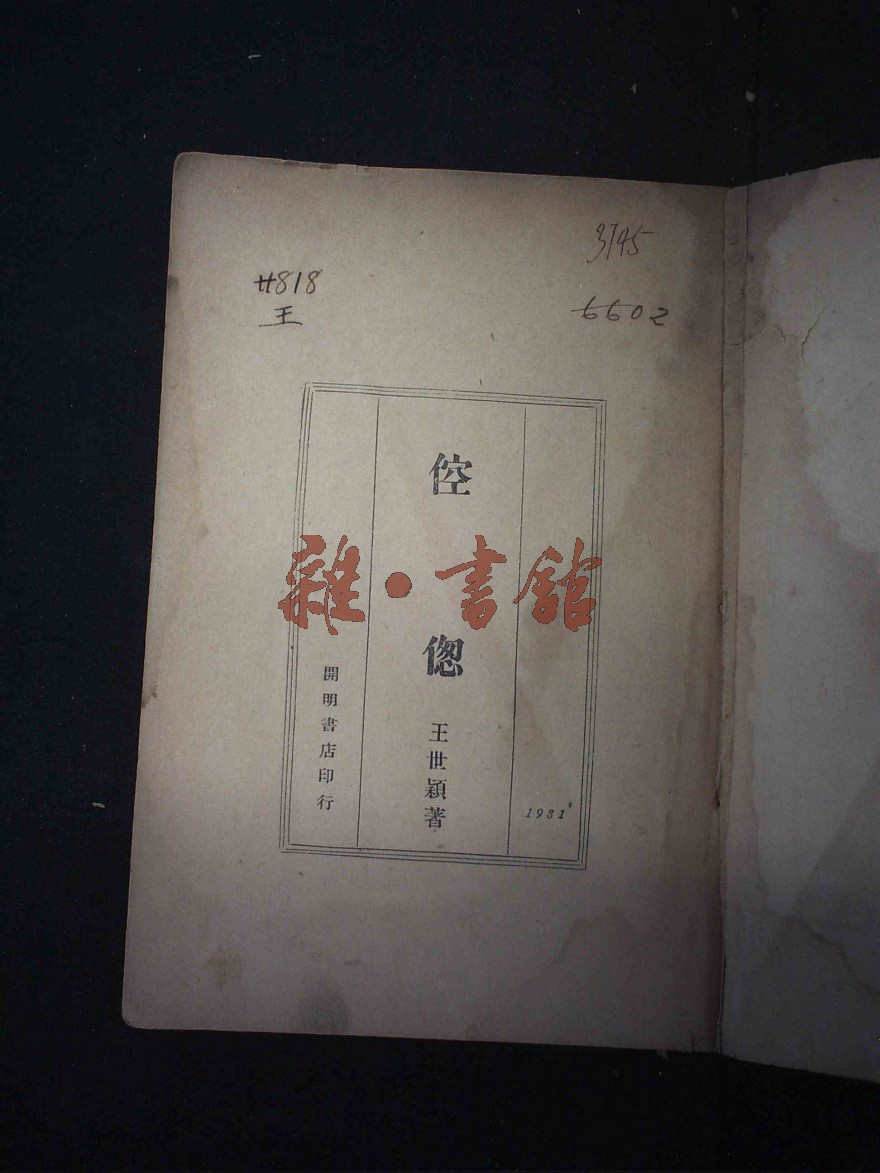 3745
#818
王
6602
倥
偬
王世穎著
1931
開明書店印行
雜·書館